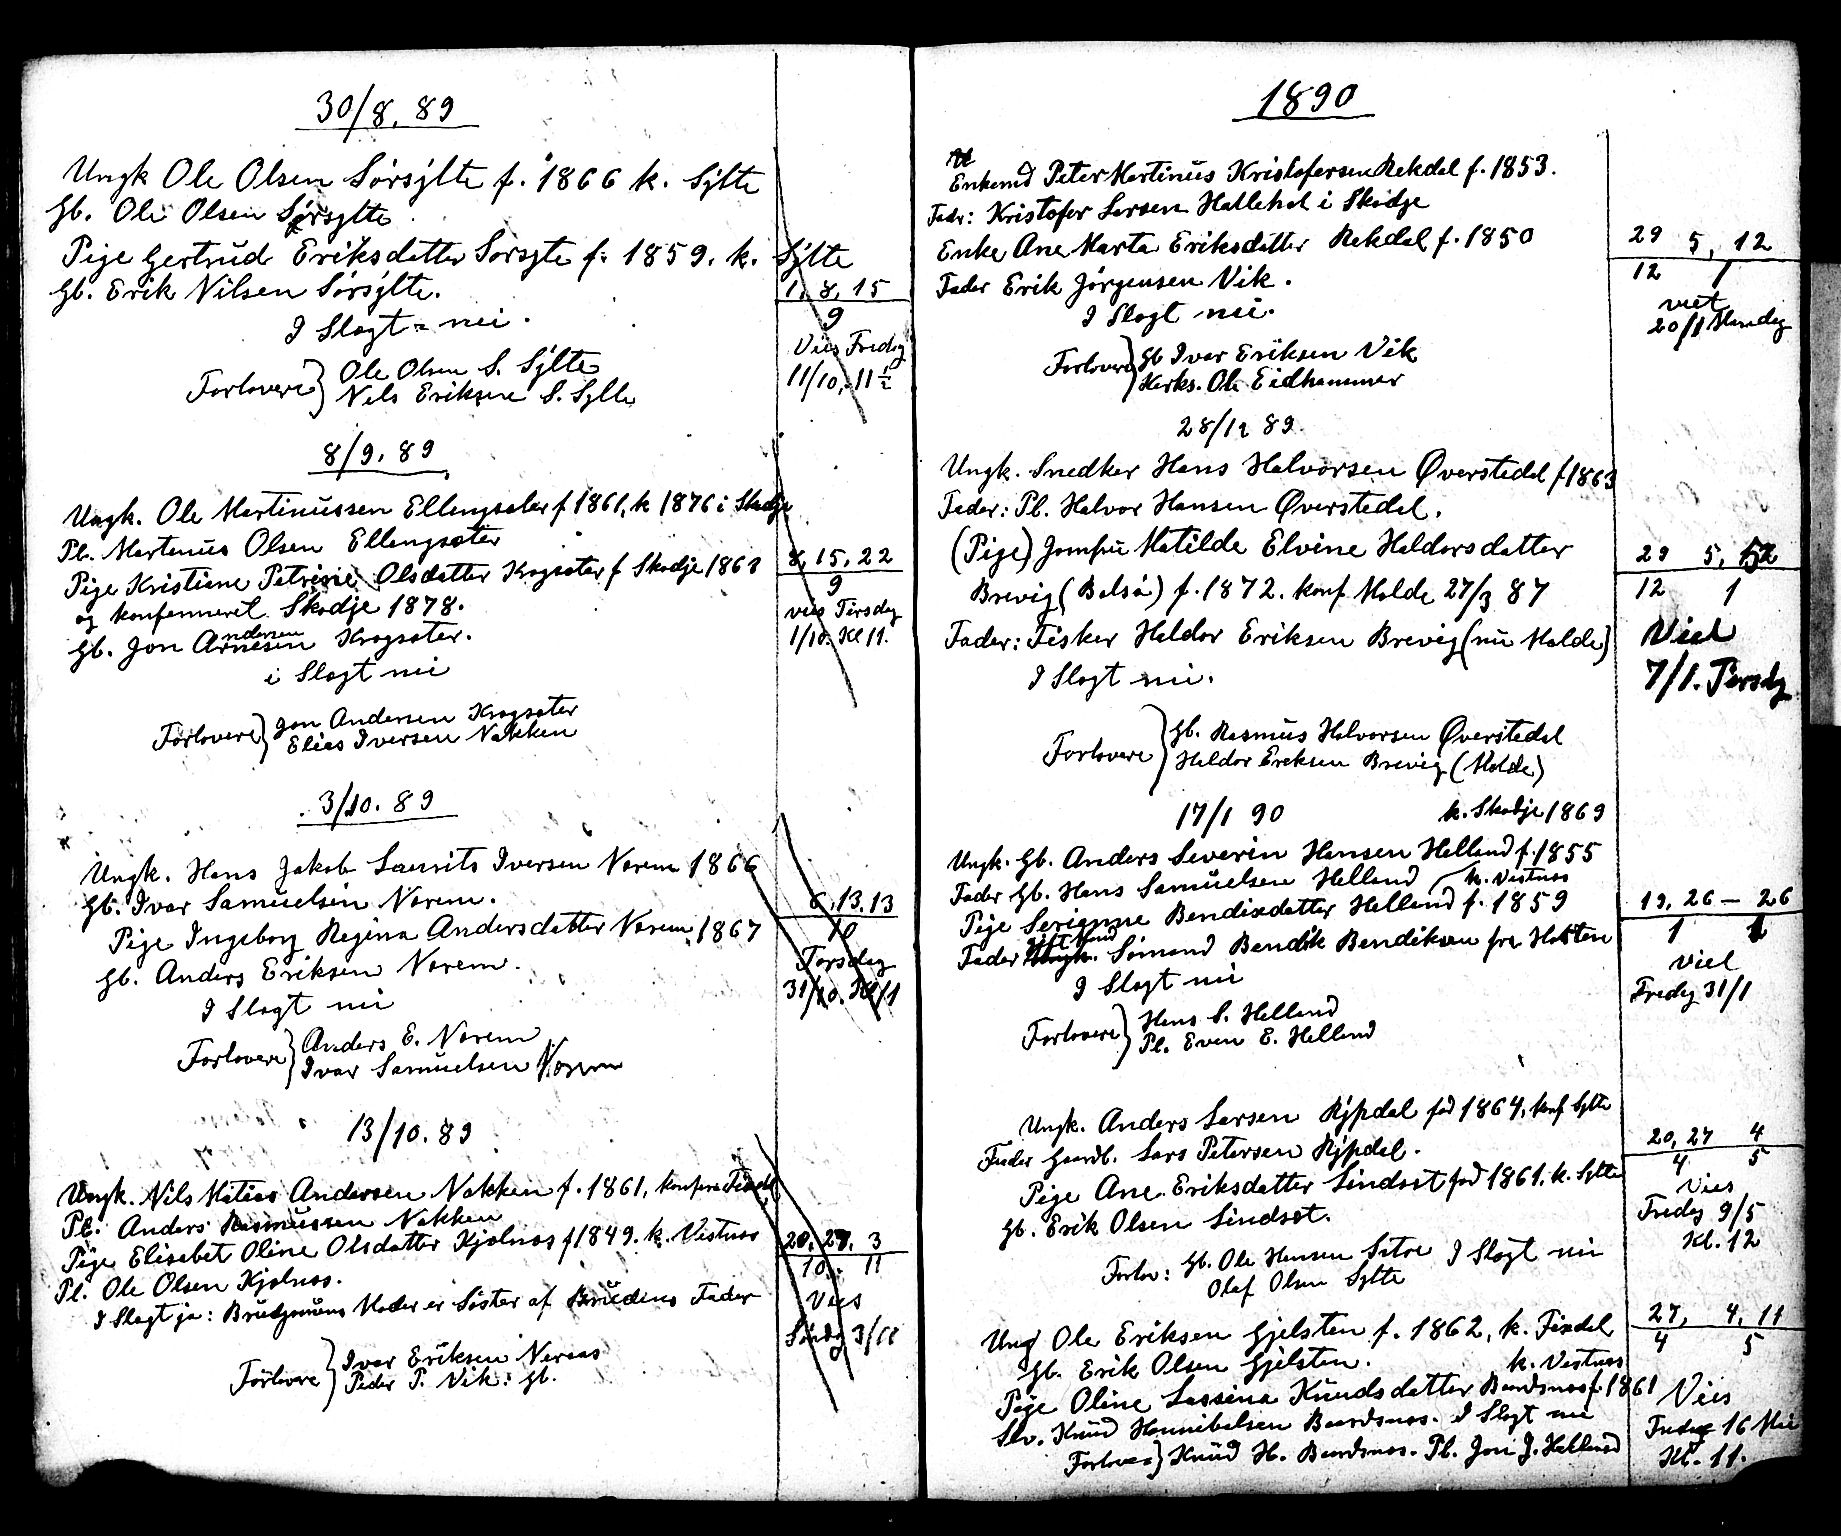 30/8. 89
Ungk Ole Olsen Sørsylte f. 1866 k. Sylte
Gb. Ole Olsen Sørsylte
Pige Gertrud Eriksdatter Sørsylte f. 1859. k. Sylte
Gb. Erik Nilsen Sørsylte.
I Slagt - nei.
Forlovere } Ole Olsen S. Sylte
Nils Eriksen S. Sylte
1, 8, 15
9
Vies Fredag
11/10. 11½
8/9. 89
Ungk. Ole Martinussen Ellengsæter f 1861, k 1876 i Skodje
Pl. Martinus Olsen Ellengsæter
Pige Kristiane Petrine Olsdatter Krogsæter f Skodje 1863
og konfirmeret Skodje 1878.
Gb. Jon Arnesen Krogsæter.
ndersen
i Slagt nei
Forlovere } Jon Andersen Krogsæter
Elias Iversen Nakken
8, 15, 22
9
vies Tirsdag
1/10. Kl 11.
3/10. 89
Ungk. Hans Jakob Laurits Iversen Norem 1866
Gb. Ivar Samuelsen Norem.
Pige Ingeborg Regina Andersdatter Norem 1867
Gb. Anders Eriksen Norem.
I Slagt nei
Forlovere } Anders E. Norem
Ivar Samuelsen Norem
6, 13, 13
10
Torsdag
31/10. Kl 11
13/10. 89
Ungk. Nils Matias Andersen Nakken f. 1861, konf Fixdal
Pl. Anders Rasmussen Nakken
Pige Elisabet Oline Olsdatter Kjølnæs f 1849. k. Vestnæs
Pl. Ole Olsen Kjølnæs.
I Slagt ja: Brudgomens Moder er Søster af Brudens Fader
Forlovere } Ivar Eriksen Neraas
Peder P. Vik. Gb.
20, 27, 3
10. 11
Vies
Søndag 3/11
1890
Enkemd Peter Martinus Kristofersen Rekdal f. 1853.
Fadr: Kristofer Larsen Hallehol i Skodje
Enke Ane Marta Eriksdatter Rekdal f. 1850
Fader Erik Jørgensen Vik.
I Slagt nei.
Forlovere } Gb Ivar Eriksen Vik
Kirks. Ole Eidhammer
29 5, 12
12 1
viet
20/1 Mandag
28/12 89.
Ungk. Snedker Hans Halvorsen Øverstedal f 1863
Fader: Pl. Halvor Hansen Øverstedal.
(Pige) Jomfru Matilde Elvine Haldorsdatter
Brevig (Bolsø) f. 1872. konf Molde 27/3 87
Fader: Fisker Haldor Eriksen Brevig (nu Molde)
I Slagt nei.
Forlovere } Gb. Rasmus Halvorsen Øverstedal
Haldor Eriksen Brevig (Molde)
29 5, 12
12 1
Viet
7/1. Tirsdag
17/1 90
k. Skodje 1869
Ungk. Gb. Anders Severin Hansen Helland f. 1855
Fader Gb. Hans Samuelsen Helland
k. Vestnæs
Pige Serianne Bendixdatter Helland f. 1859
Fader Sømand Bendik Bendiksen fra Holsten
I Slagt nei
Forlovere } Hans S. Helland
Pl. Even E. Helland
19, 26 - 26
1 1
Viet
Fredag 31/1
Ungk. Anders Larsen Rypdal fød 1864, konf Sylte
Fader Gaardb. Lars Petersen Rypdal.
Pige Ane Eriksdatter Lindset fød 1861. k. Sylte
Gb. Erik Olsen Lindset.
Forlov: Gb. Ole Hansen Sætre I Slagt nei
Olaf Olsen Sylte
20, 27 4
4 5
Vies
Fredag 9/5
Kl. 12
Ung Ole Eriksen Gjelsten f. 1862, k. Fixdal
Gb. Erik Olsen Gjelsten.
k. Vestnæs
Pige Oline Lassina Knudsdatter Baardsnæs f. 1861
Slv. Knud Hannibalsen Baardsnæs. I Slagt nei
Forlovere } Knud H. Baardsnæs. Pl. Jon J. Helland
27, 4, 11
4 5
Vies
Fredag 16 Mai
Kl. 11.